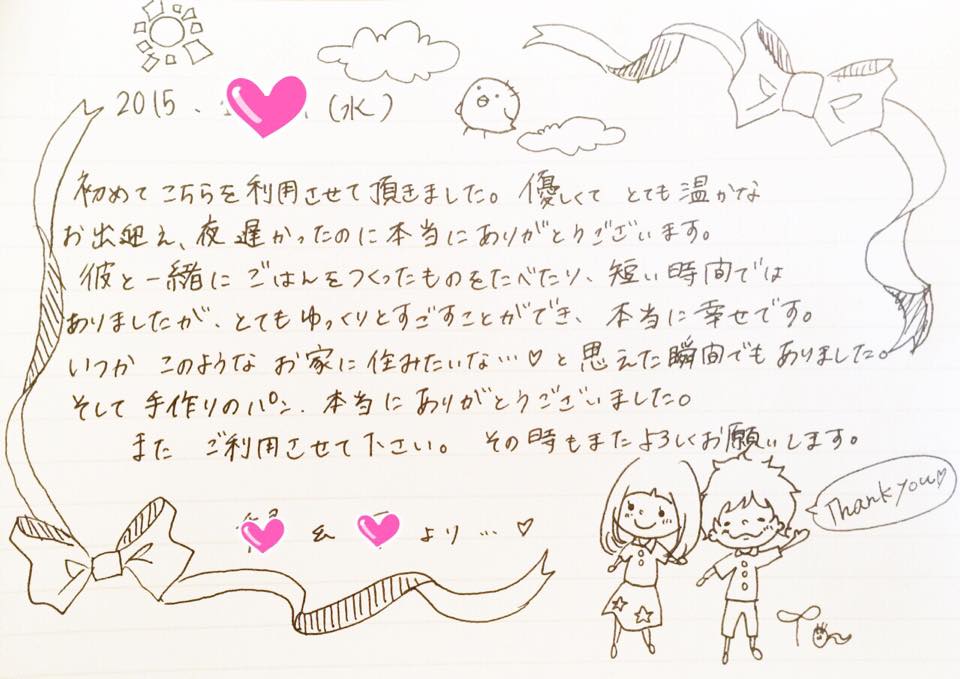 2015.
(水)
初めてこちらを利用させて頂きました。優しくて とても温かな
お出迎え、夜遅かったのに本当にありがとうございます。
彼と一緒に ごはんをつくったものをたべたり、短い時間では
ありましたが、とてもゆっくりとすごすことができ、本当に幸せです。
いつか このような お家に住みたいな…♡と思えた瞬間でもありました。
そして 手作りのパン、本当に ありがとうございました。
また ご利用させて下さい。 その時もまたよろしくお願いします。
Thank you♡
& より…♡